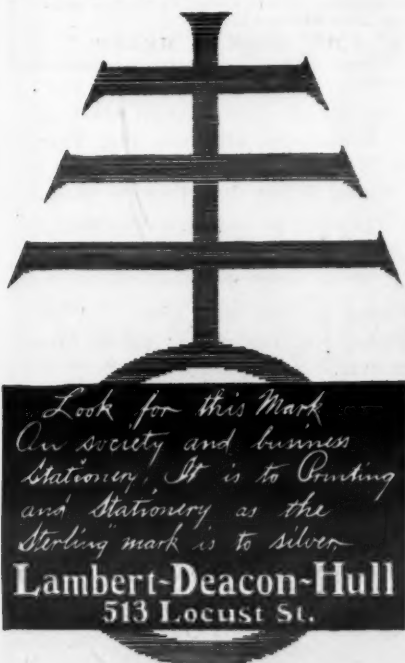 Look for this Mark
On society and business
Stationery. It is to Printing
and Stationery as the
Sterling" mark is to silver
Lambert-Deacon-Hull
513 Locust St.